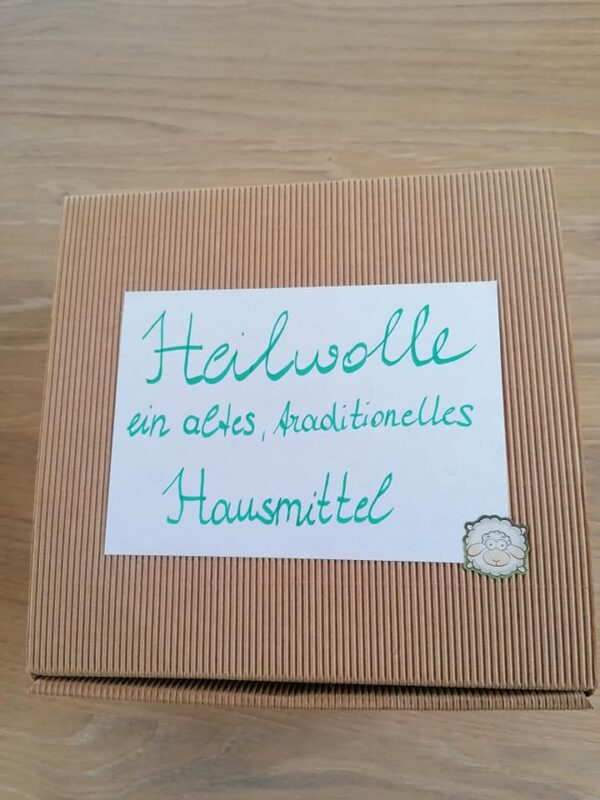 Heilwolle
ein altes, traditionelles
Hausmittel